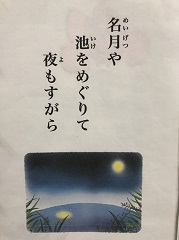 名月や
池をめぐりて
夜もすがら